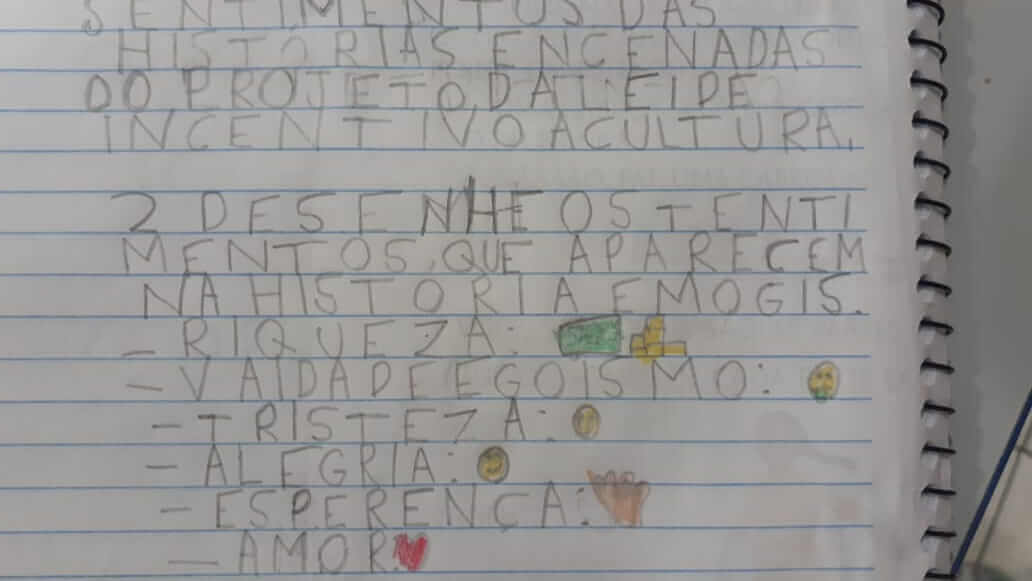 SENTIMENTOS DAS
HISTORIAS ENCENADAS
DO PROJETO, DA LEI DE
INCENTIVO A CULTURA.
2 DESENHE OS TENTI
MENTOS, QUE APARECEM
NA HISTORIA EMOGIS.
- RIQUEZA:
- VAIDADE E EGOISMO:
- TRISTEZA:
- ALEGRIA:
- ESPERENÇA:
- AMOR: